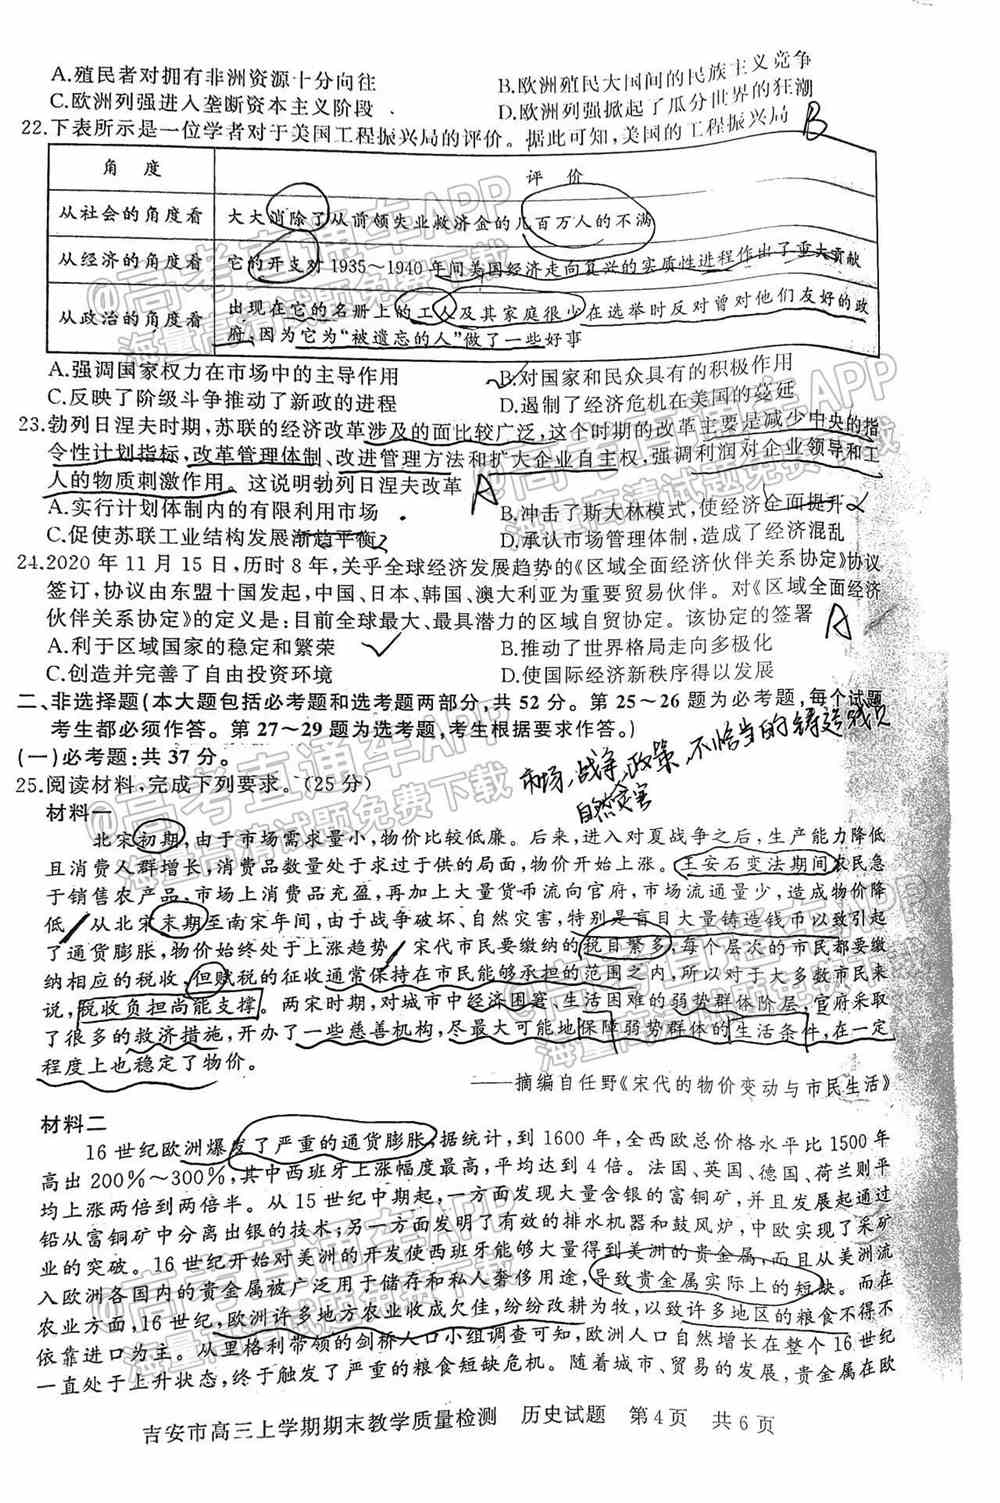 A.殖民者对拥有非洲资源十分向往 B.欧洲殖民大国间的民族主义竞争
C.欧洲列强进入垄断资本主义阶段 D.欧洲列强掀起了瓜分世界的狂潮
22.下表所示是一位学者对于美国工程振兴局的评价。据此可知,美国的工程振兴局 B
角 度 评 价
从社会的角度看 大大消除了从前领失业救济金的几百万人的不满
从经济的角度看 它的开支对1935~1940年间美国经济走向复兴的实质性进程作出了重大贡献
从政治的角度看 出现在它的名册上的工人及其家庭很少在选举时反对曾对他们友好的政
府,因为它为“被遗忘的人”做了一些好事
A.强调国家权力在市场中的主导作用 B.对国家和民众具有的积极作用
C.反映了阶级斗争推动了新政的进程 D.遏制了经济危机在美国的蔓延
23.勃列日涅夫时期,苏联的经济改革涉及的面比较广泛,这个时期的改革主要是减少中央的指
令性计划指标,改革管理体制、改进管理方法和扩大企业自主权,强调利润对企业领导和工
人的物质刺激作用。这说明勃列日涅夫改革 A
A.实行计划体制内的有限利用市场 B.冲击了斯大林模式,使经济全面提升
C.促使苏联工业结构发展渐趋平衡 D.承认市场管理体制,造成了经济混乱
24.2020年11月15日,历时8年,关乎全球经济发展趋势的《区域全面经济伙伴关系协定》协议
签订,协议由东盟十国发起,中国、日本、韩国、澳大利亚为重要贸易伙伴。对《区域全面经济
伙伴关系协定》的定义是:目前全球最大、最具潜力的区域自贸协定。该协定的签署 A
A.利于区域国家的稳定和繁荣 B.推动了世界格局走向多极化
C.创造并完善了自由投资环境 D.使国际经济新秩序得以发展
二、非选择题(本大题包括必考题和选考题两部分,共52分。第25~26题为必考题,每个试题
考生都必须作答。第27~29题为选考题,考生根据要求作答。)
(一)必考题:共37分。
市场、战争、政策、不恰当的铸造钱
25.阅读材料,完成下列要求。(25分)
自然灾害
材料一
北宋初期,由于市场需求量小,物价比较低廉。后来,进入对夏战争之后,生产能力降低
且消费人群增长,消费品数量处于求过于供的局面,物价开始上涨。王安石变法期间农民急
于销售农产品,市场上消费品充盈,再加上大量货币流向官府,市场流通量少,造成物价降
低。从北宋末期至南宋年间,由于战争破坏、自然灾害,特别是盲目大量铸造钱币以致引起
了通货膨胀,物价始终处于上涨趋势。宋代市民要缴纳的税目繁多,每个层次的市民都要缴
纳相应的税收,但赋税的征收通常保持在市民能够承担的范围之内,所以对于大多数市民来
说,税收负担尚能支撑。两宋时期,对城市中经济困窘、生活困难的弱势群体阶层,官府采取
了很多的救济措施,开办了一些慈善机构,尽最大可能地保障弱势群体的生活条件,在一定
程度上也稳定了物价。
——摘编自任野《宋代的物价变动与市民生活》
材料二
16世纪欧洲爆发了严重的通货膨胀,据统计,到1600年,全西欧总价格水平比1500年
高出200%~300%,其中西班牙上涨幅度最高,平均达到4倍。法国、英国、德国、荷兰则平
均上涨两倍到两倍半。从15世纪中期起,一方面发现大量含银的富铜矿,并且发展起通过
铅从富铜矿中分离出银的技术;另一方面发明了有效的排水机器和鼓风炉,中欧实现了采矿
业的突破。16世纪开始对美洲的开发使西班牙能够大量得到美洲的贵金属,而且从美洲流
入欧洲各国内的贵金属被广泛用于储存和私人奢侈用途,导致贵金属实际上的短缺。而在
农业方面,16世纪,欧洲许多地方农业收成欠佳,纷纷改耕为牧,以致许多地区的粮食不得不
依靠进口为主。从里格利带领的剑桥人口小组调查可知,欧洲人口自然增长在整个16世纪
一直处于上升状态,终于触发了严重的粮食短缺危机。随着城市、贸易的发展,贵金属在欧
吉安市高三上学期期末教学质量检测 历史试题 第4页 共6页
@高考直通车APP
海量高清试题免费下载
@高考直通车APP
海量高清试题免费下载
@高考直通车APP
海量高清试题免费下载
@高考直通车APP
海量高清试题免费下载
@高考直通车APP
海量高清试题免费下载